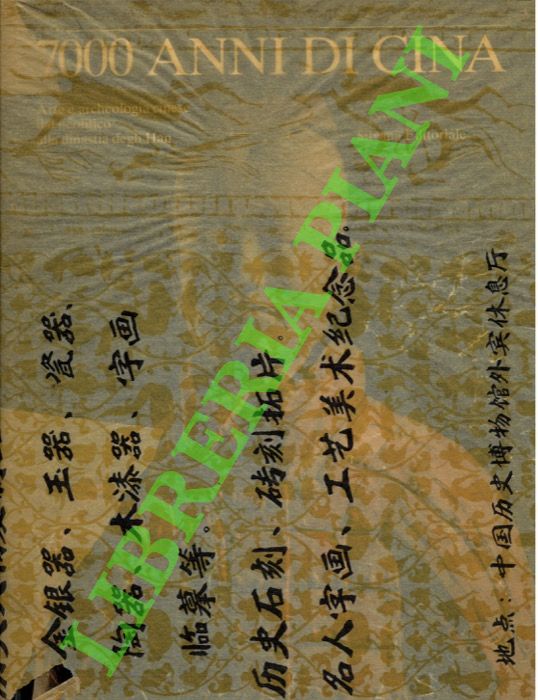 7000 ANNI DI CINA
Arte e archeologia cinese
dal neolitico
alla dinastia degli Han
Editoriale
金银器、玉器、瓷器、
陶器、木漆器、字画
临摹等。
历史石刻、砖刻拓片。
名人字画、工艺美术纪念品。
地点：中国历史博物馆外宾休息厅
LIBRERIA PIANI